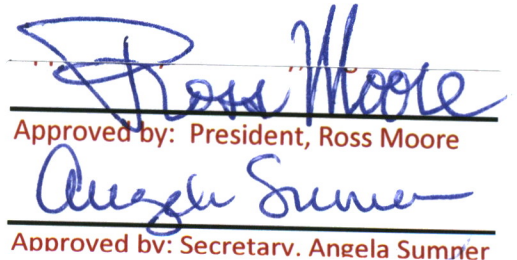 Ross Moore
Approved by: President, Ross Moore
Angela Sumner
Approved by: Secretary, Angela Sumner